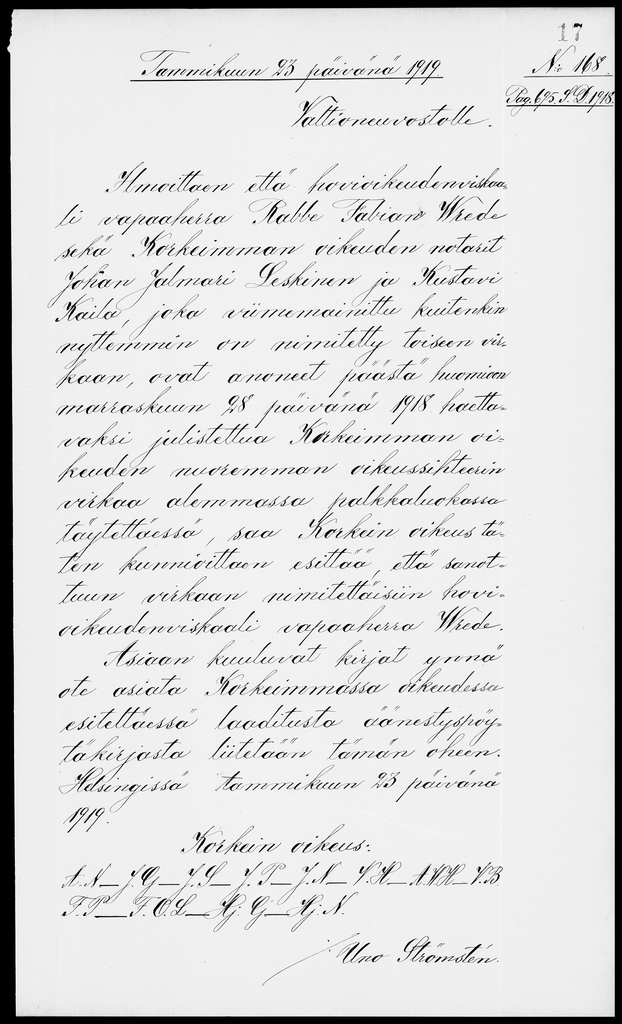 17
Tammikuun 23 päivänä 1919.
No 168.
Pag. 695. S.D. 1918.
Valtioneuvostolle.
Ilmoittaen että hovioikeudenviskaa-
li vapaaherra Rabbe Fabian Wrede
sekä Korkeimman oikeuden notarit
Johan Jalmari Leskinen ja Kustavi
Kaila, joka viimemainittu kuitenkin
nyttemmin on nimitetty toiseen vir-
kaan, ovat anoneet päästä huomioon
marraskuun 28 päivänä 1918 haetta-
vaksi julistettua Korkeimman oi-
keuden nuoremman oikeussihteerin
virkaa alemmassa palkkaluokassa
täytettäessä, saa Korkein oikeus tä-
ten kunnioittaen esittää, että sanot-
tuun virkaan nimitettäisiin hovi-
oikeudenviskaali vapaaherra Wrede.
Asiaan kuuluvat kirjat ynnä
ote asiata Korkeimmassa oikeudessa
esitettäessä laaditusta äänestyspöy-
täkirjasta liitetään tämän oheen.
Helsingissä tammikuun 23 päivänä
1919.
Korkein oikeus:
A.N— J.G— J.S— J.P— J.N— V.H— A.W.H— V.B
F.P— F.O.L— Hj.G— Hj.N.
Uno Strömsten.